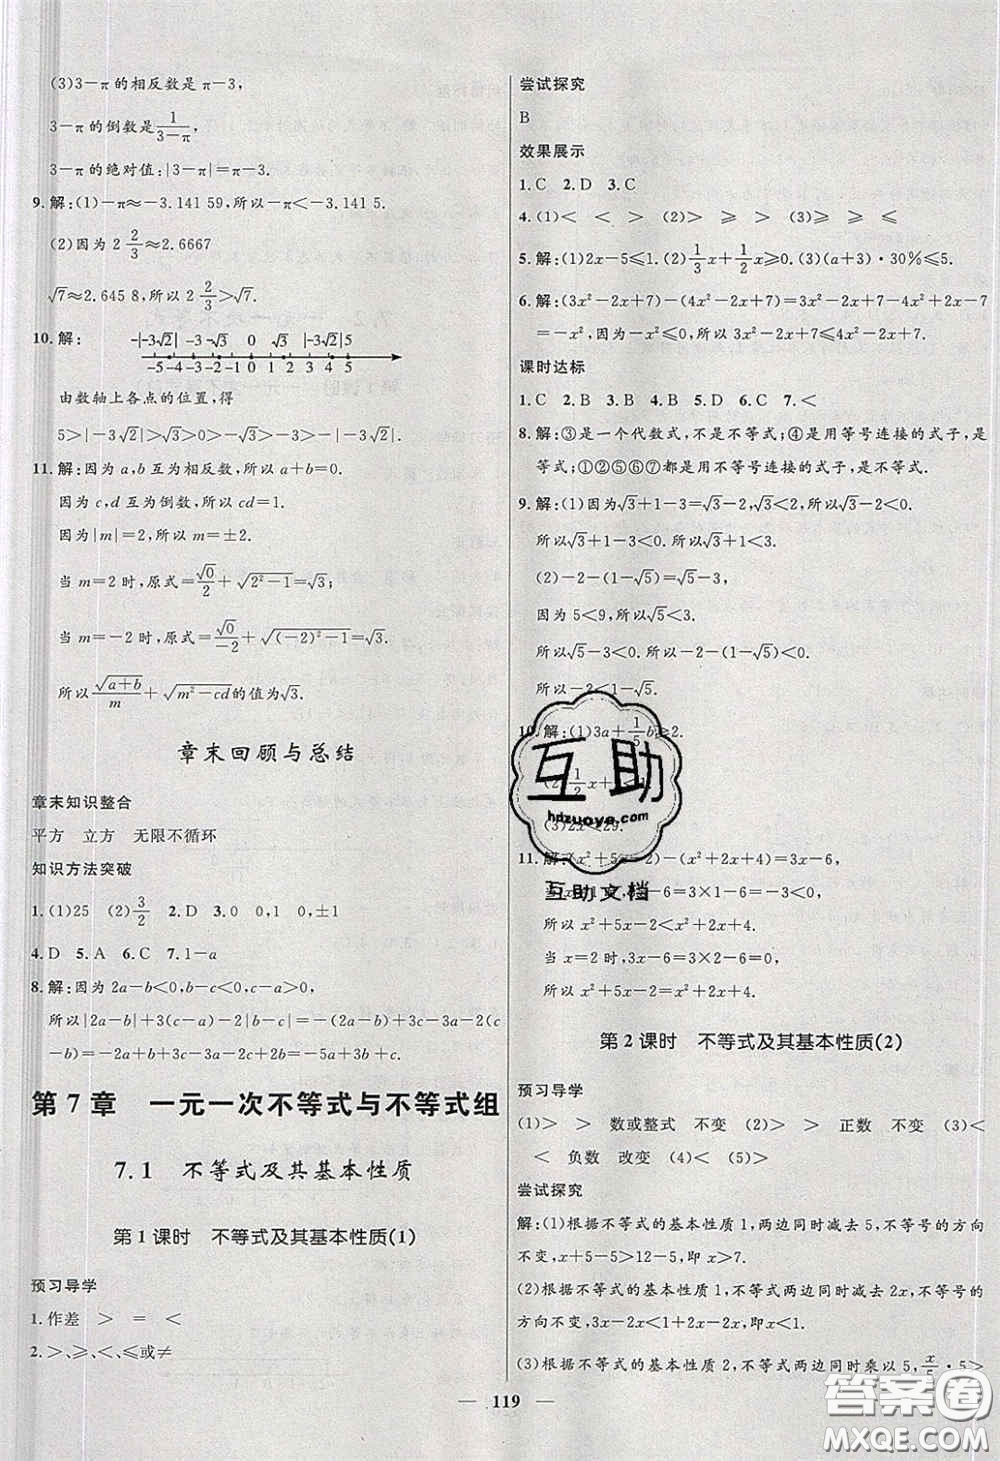 (3)3-π的相反数是π-3,
3-π的倒数是1/(3-π),
3-π的绝对值:|3-π|=π-3.
9.解:(1)-π≈-3.141 59,所以-π<-3.141 5.
(2)因为2 2/3≈2.6667
√7≈2.645 8,所以2 2/3>√7.
10.解: -|-3√2| -3 -√3 0 √3 |-3√2| 5
-5-4-3-2-1 0 1 2 3 4 5
由数轴上各点的位置,得
5>|-3√2|>√3>0>-√3>-3>-|-3√2|.
11.解:因为a,b互为相反数,所以a+b=0.
因为c,d互为倒数,所以cd=1.
因为|m|=2,所以m=±2.
当m=2时,原式=√0/2+√(2²-1)=√3;
当m=-2时,原式=√0/-2+√((-2)²-1)=√3.
所以√(a+b)/m+√(m²-cd)的值为√3.
章末回顾与总结
章末知识整合
平方 立方 无限不循环
知识方法突破
1.(1)25 (2)3/2 2.D 3.0 0,1 0,±1
4.D 5.A 6.C 7.1-a
8.解:因为2a-b<0,b-c<0,c-a>0,
所以|2a-b|+3(c-a)-2|b-c|=-(2a-b)+3(c-a)-2(c
-b)=-2a+b+3c-3a-2c+2b=-5a+3b+c.
第7章 一元一次不等式与不等式组
7.1 不等式及其基本性质
第1课时 不等式及其基本性质(1)
预习导学
1.作差 > = <
2.>、≥、<、≤或≠
尝试探究
B
效果展示
1.C 2.D 3.C
4.(1)< < > (2)> ≥ > (3)≥ ≥ ≤
5.解:(1)2x-5≤1.(2)1/3x+1/2x≥0.(3)(a+3)·30%≤5.
6.解:(3x²-2x+7)-(4x²-2x+7)=3x²-2x+7-4x²+2x-7
=-x²,因为-x²≤0,所以3x²-2x+7≤4x²-2x+7.
课时达标
1.C 2.B 3.B 4.B 5.D 6.C 7.<
8.解:③是一个代数式,不是不等式;④是用等号连接的式子,是
等式;①②⑤⑥⑦都是用不等号连接的式子,是不等式.
9.解:(1)因为√3+1-3=√3-2,√3<2,所以√3-2<0.
所以√3+1-3<0.所以√3+1<3.
(2)-2-(1-√5)=√5-3,
因为5<9,所以√5<3.
所以√5-3<0,所以-2-(1-√5)<0.
所以-2<1-√5.
10.解:(1)3a+1/5b≥2.
1/2x+
(3)2x<29.
11.解:(x²+5x-2)-(x²+2x+4)=3x-6,
当x=1时,3x-6=3×1-6=-3<0,
所以x²+5x-2<x²+2x+4.
当x=2时,3x-6=3×2-6=0,
所以x²+5x-2=x²+2x+4.
第2课时 不等式及其基本性质(2)
预习导学
(1)> > 数或整式 不变 (2)> > 正数 不变 (3)<
< 负数 改变 (4)< (5)>
尝试探究
解:(1)根据不等式的基本性质1,两边同时减去5,不等号的方向
不变,x+5-5>12-5,即x>7.
(2)根据不等式的基本性质1,不等式两边同时减去2x,不等号的
方向不变,3x-2x<1+2x-2x,即x<1.
(3)根据不等式的基本性质2,不等式两边同时乘以5,x/5·5>
119
互助
hdzuoye.com
互助文档
答案圈
MXQE.COM